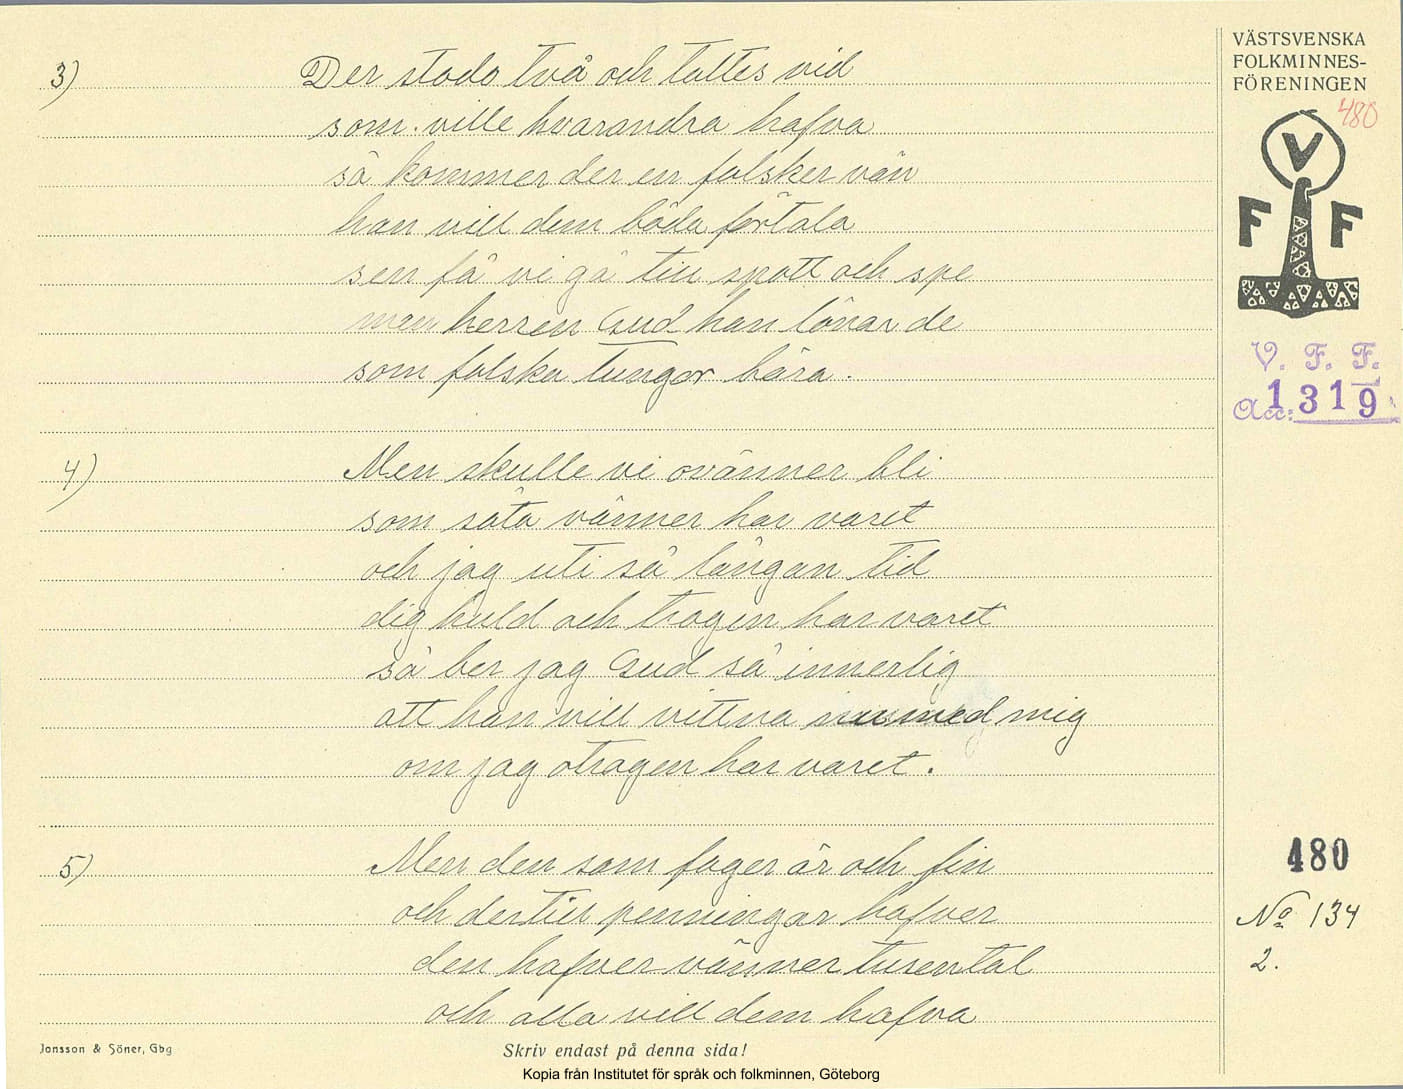 3) Der stodo två och taltes vid
som ville hvarandra hafva
så kommer der en falsker vän
han vill dem båda förtala
sen få vi gå till spott och spe
men herren Gud han lönar de
som falska tungor bära.
4) Men skulle vi ovänner bli
som såta vänner har varet
och jag uti så långan tid
dig huld och trogen har varet
så ber jag Gud så innerlig
att han vill vittna med mig
om jag otrogen har varet.
5) Men den som fager är och fin
och dertill penningar hafver
den hafver vänner tusental
och alla vill dem hafva
Jonsson & Söner, Gbg
Skriv endast på denna sida!
Kopia från Institutet för språk och folkminnen, Göteborg
VÄSTSVENSKA
FOLKMINNES-
FÖRENINGEN
480
V
F F
V. F. F.
Acc: 1319
480
No 134
2.